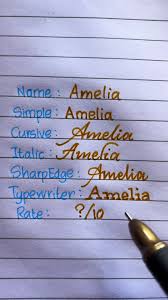 Name : Amelia
Simple : Amelia
Cursive : Amelia
Italic : Amelia
SharpEdge : Amelia
Typewriter : Amelia
Rate : ?/10